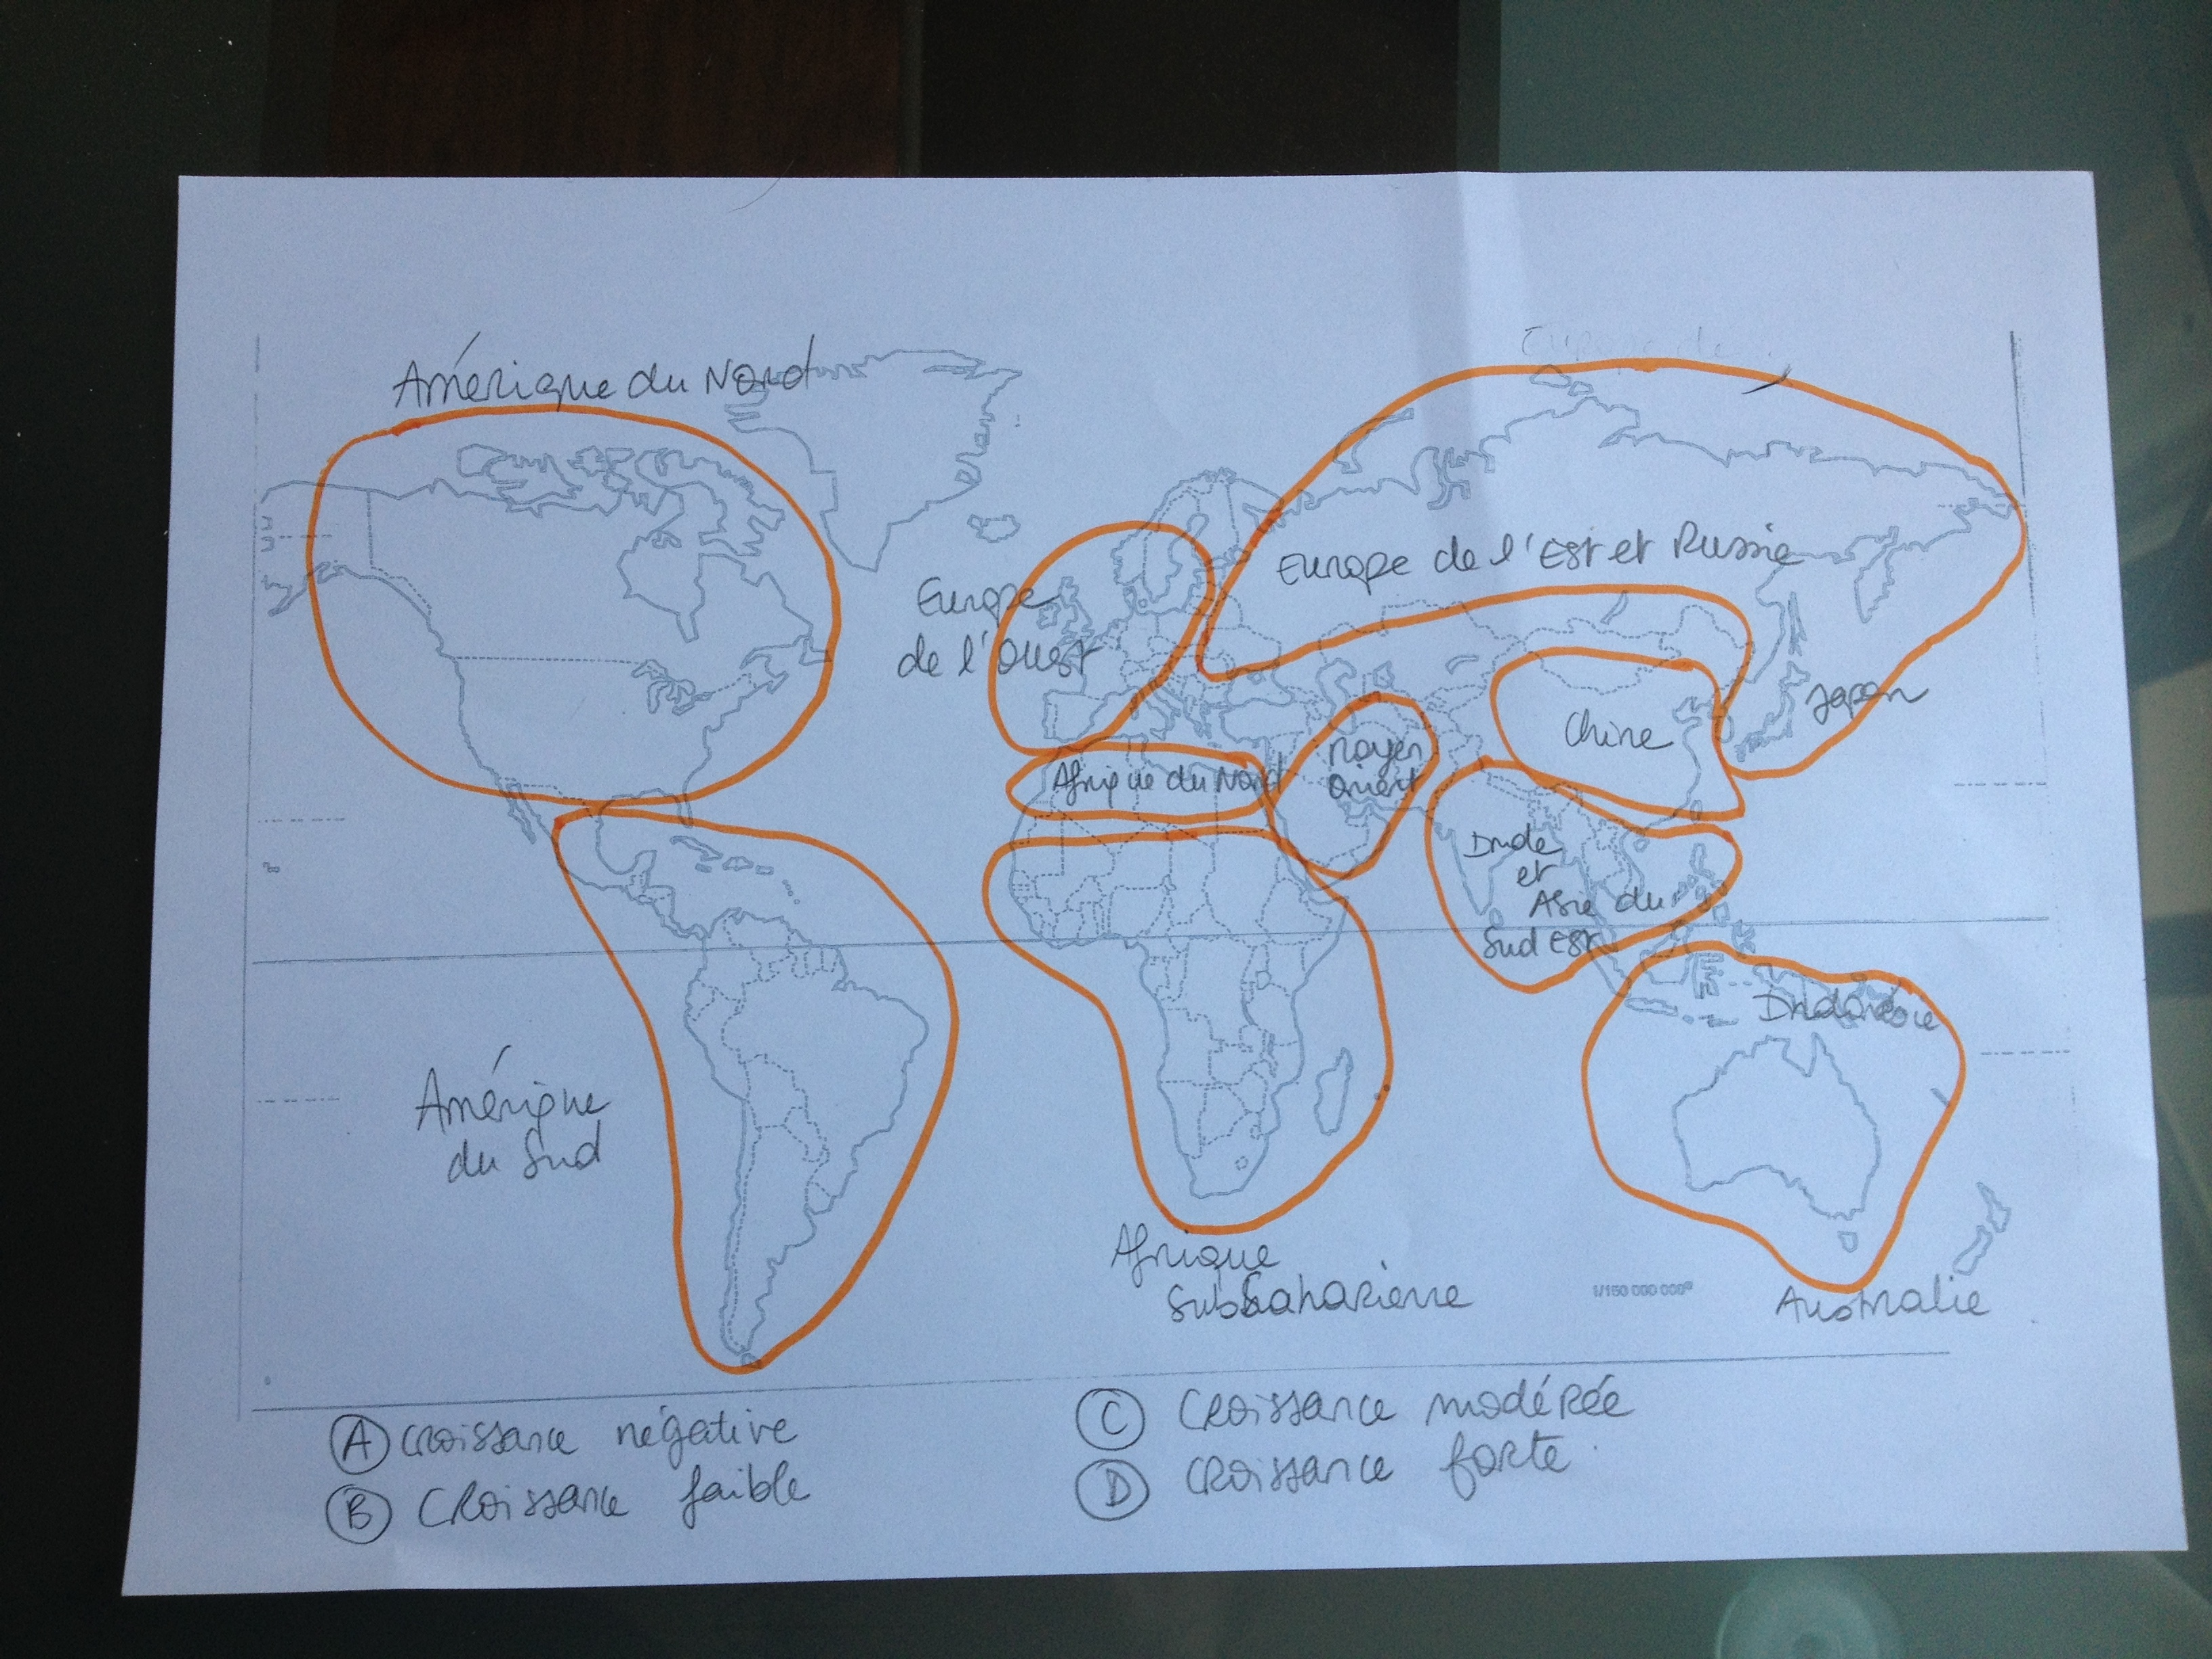 Amérique du Nord
Europe de
Europe de l'Est et Russie
Europe
de l'Ouest
Japon
Chine
Moyen
Orient
Afrique du Nord
Inde
et
Asie du
Sud Est
Indonésie
Amérique
du Sud
Afrique
SubSaharienne
1/150 000 000e
Australie
A Croissance négative
B Croissance faible
C Croissance modérée
D Croissance forte